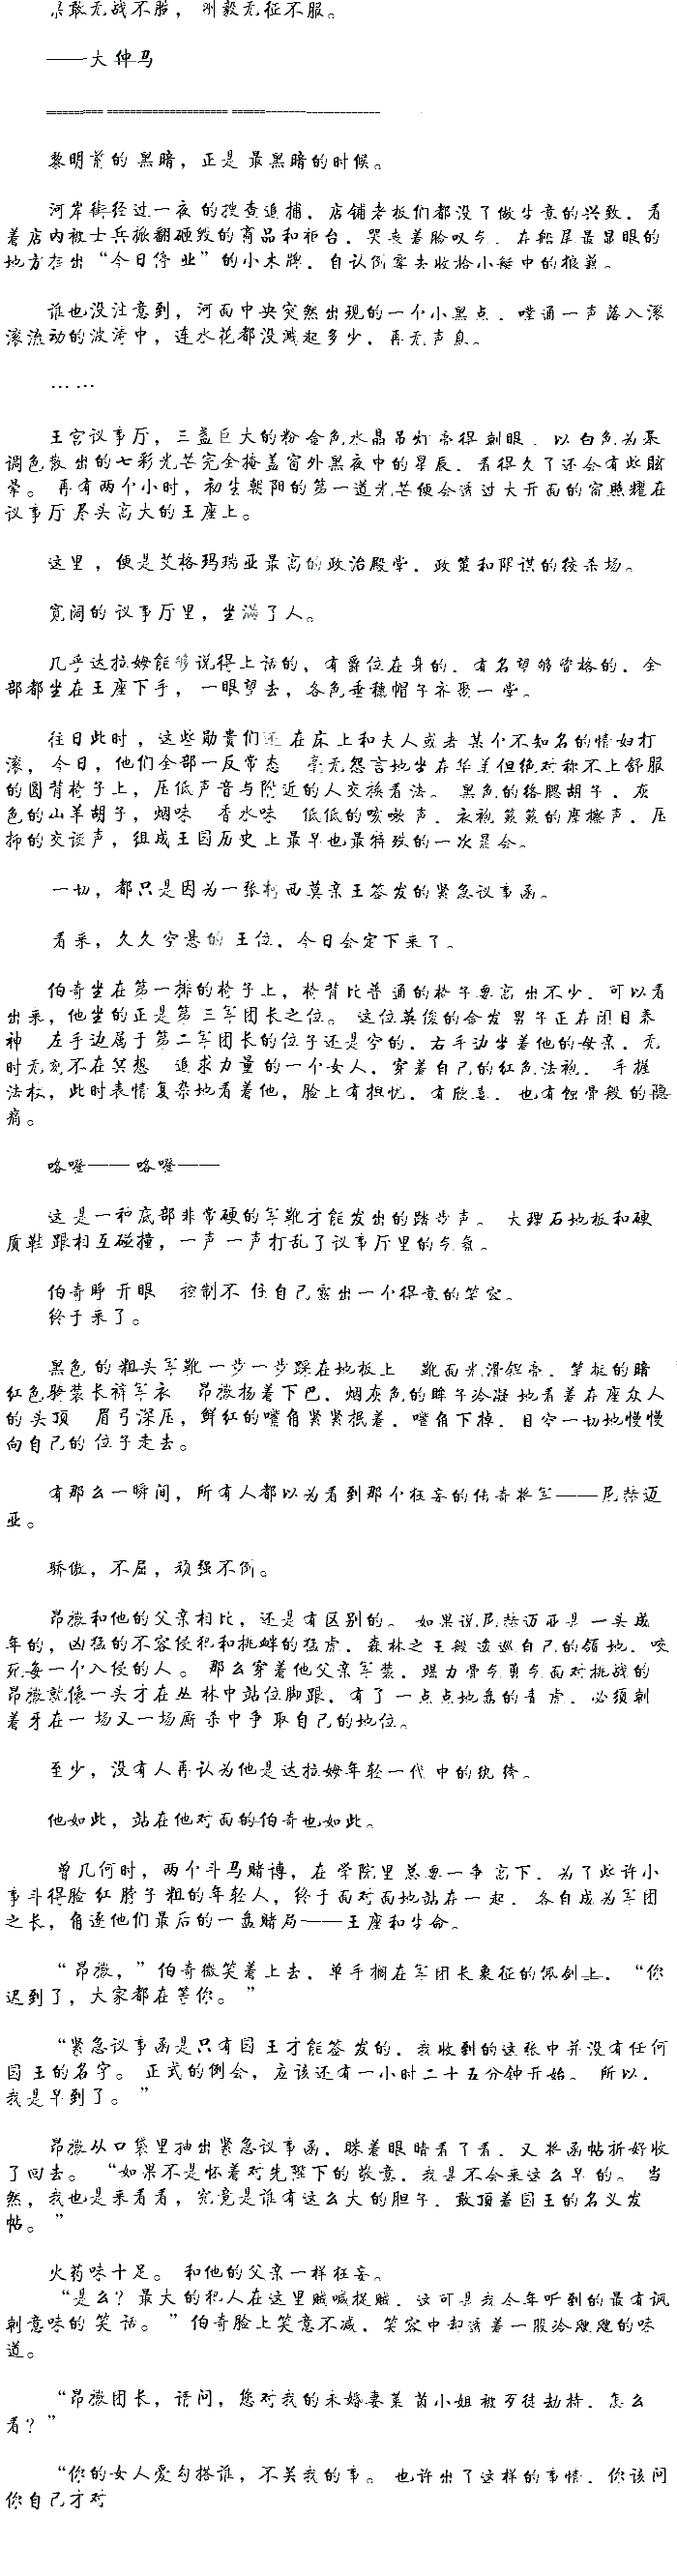 敢无战不胜，刚毅无征不服。
——大仲马
黎明前的黑暗，正是最黑暗的时候。
河岸街经过一夜的搜查追捕，店铺老板们都没了做生意的兴致，看
着店内被士兵掀翻砸毁的商品和柜台，哭丧着脸叹气，在船尾最显眼的
地方挂出“今日停业”的小木牌，自认倒霉去收拾小艇中的狼藉。
谁也没注意到，河面中央突然出现的一个小黑点，噗通一声落入滚
滚流动的波涛中，连水花都没溅起多少，再无声息。
……
王宫议事厅，三盏巨大的粉金色水晶吊灯亮得刺眼，以白色为基
调色散出的七彩光芒完全掩盖窗外黑夜中的星辰，看得久了还会有些眩
晕。再有两个小时，初生朝阳的第一道光芒便会透过大开面的窗照耀在
议事厅尽头高大的王座上。
这里，便是艾格玛瑞亚最高的政治殿堂，政策和阴谋的绞杀场。
宽阔的议事厅里，坐满了人。
几乎达拉姆能够说得上话的，有爵位在身的，有名望够资格的，全
部都坐在王座下手，一眼望去，各色垂穗帽子齐聚一堂。
往日此时，这些勋贵们还在床上和夫人或者某个不知名的情妇打
滚，今日，他们全部一反常态 毫无怨言地坐在华美但绝对称不上舒服
的圆背椅子上，压低声音与附近的人交换看法。黑色的络腮胡子，灰
色的山羊胡子，烟味 香水味 低低的咳嗽声，衣袍簌簌的摩擦声，压
抑的交谈声，组成王国历史上最早也最特殊的一次晨会。
一切，都只是因为一张柯西莫亲王签发的紧急议事函。
看来，久久空悬的王位，今日会定下来了。
伯奇坐在第一排的椅子上，椅背比普通的椅子要高出不少，可以看
出来，他坐的正是第三军团长之位。这位英俊的金发男子正在闭目养
神 左手边属于第二军团长的位子还是空的，右手边坐着他的母亲，无
时无刻不在冥想 追求力量的一个女人，穿着自己的红色法袍，手握
法杖，此时表情复杂地看着他，脸上有担忧，有欣喜，也有蚀骨般的隐
痛。
咯噔——咯噔——
这是一种底部非常硬的军靴才能发出的踏步声。大理石地板和硬
质鞋跟相互碰撞，一声一声打乱了议事厅里的气氛。
伯奇睁开眼 控制不住自己露出一个得意的笑容。
终于来了。
黑色的粗头军靴一步一步踩在地板上 靴面光滑锃亮，笔挺的暗
红色骑装长裤军衣 昂撒扬着下巴，烟灰色的眸子冷凝地看着在座众人
的头顶 眉弓深压，鲜红的嘴角紧紧抿着，嘴角下掉，目空一切地慢慢
向自己的位子走去。
有那么一瞬间，所有人都以为看到那个狂妄的传奇将军——尼赫迈
亚。
骄傲，不屈，顽强不倒。
昂撒和他的父亲相比，还是有区别的。如果说尼赫迈亚是一头成
年的，凶猛的不容侵犯和挑衅的猛虎，森林之王般逡巡自己的领地，咬
死每一个入侵的人。那么穿着他父亲军装，提力骨气勇气面对挑战的
昂撒就像一头才在丛林中站位脚跟，有了一点点地盘的青虎，必须刺
着牙在一场又一场厮杀中争取自己的地位。
至少，没有人再认为他是达拉姆年轻一代中的纨绔。
他如此，站在他对面的伯奇也如此。
曾几何时，两个斗马赌博，在学院里总要一争高下，为了些许小
事斗得脸红脖子粗的年轻人，终于面对面地站在一起，各自成为军团
之长，角逐他们最后的一盘赌局——王座和生命。
“昂撒，”伯奇微笑着上去，单手搁在军团长象征的佩剑上，“你
迟到了，大家都在等你。”
“紧急议事函是只有国王才能签发的，我收到的这张中并没有任何
国王的名字。正式的例会，应该还有一小时二十五分钟开始。所以，
我是早到了。”
昂撒从口袋里抽出紧急议事函，眯着眼睛看了看，又将函帖折好收
了回去。“如果不是怀着对先陛下的敬意，我是不会来这么早的。当
然，我也是来看看，究竟是谁有这么大的胆子，敢顶着国王的名义发
帖。”
火药味十足。和他的父亲一样狂妄。
“是么？最大的犯人在这里贼喊捉贼，这可是我今年听到的最有讽
刺意味的笑话。”伯奇脸上笑意不减，笑容中却透着一股冷飕飕的味
道。
“昂撒团长，请问，您对我的未婚妻莱茵小姐被歹徒劫持，怎么
看？”
“你的女人爱勾搭谁，不关我的事。也许出了这样的事情，你该问
你自己才对